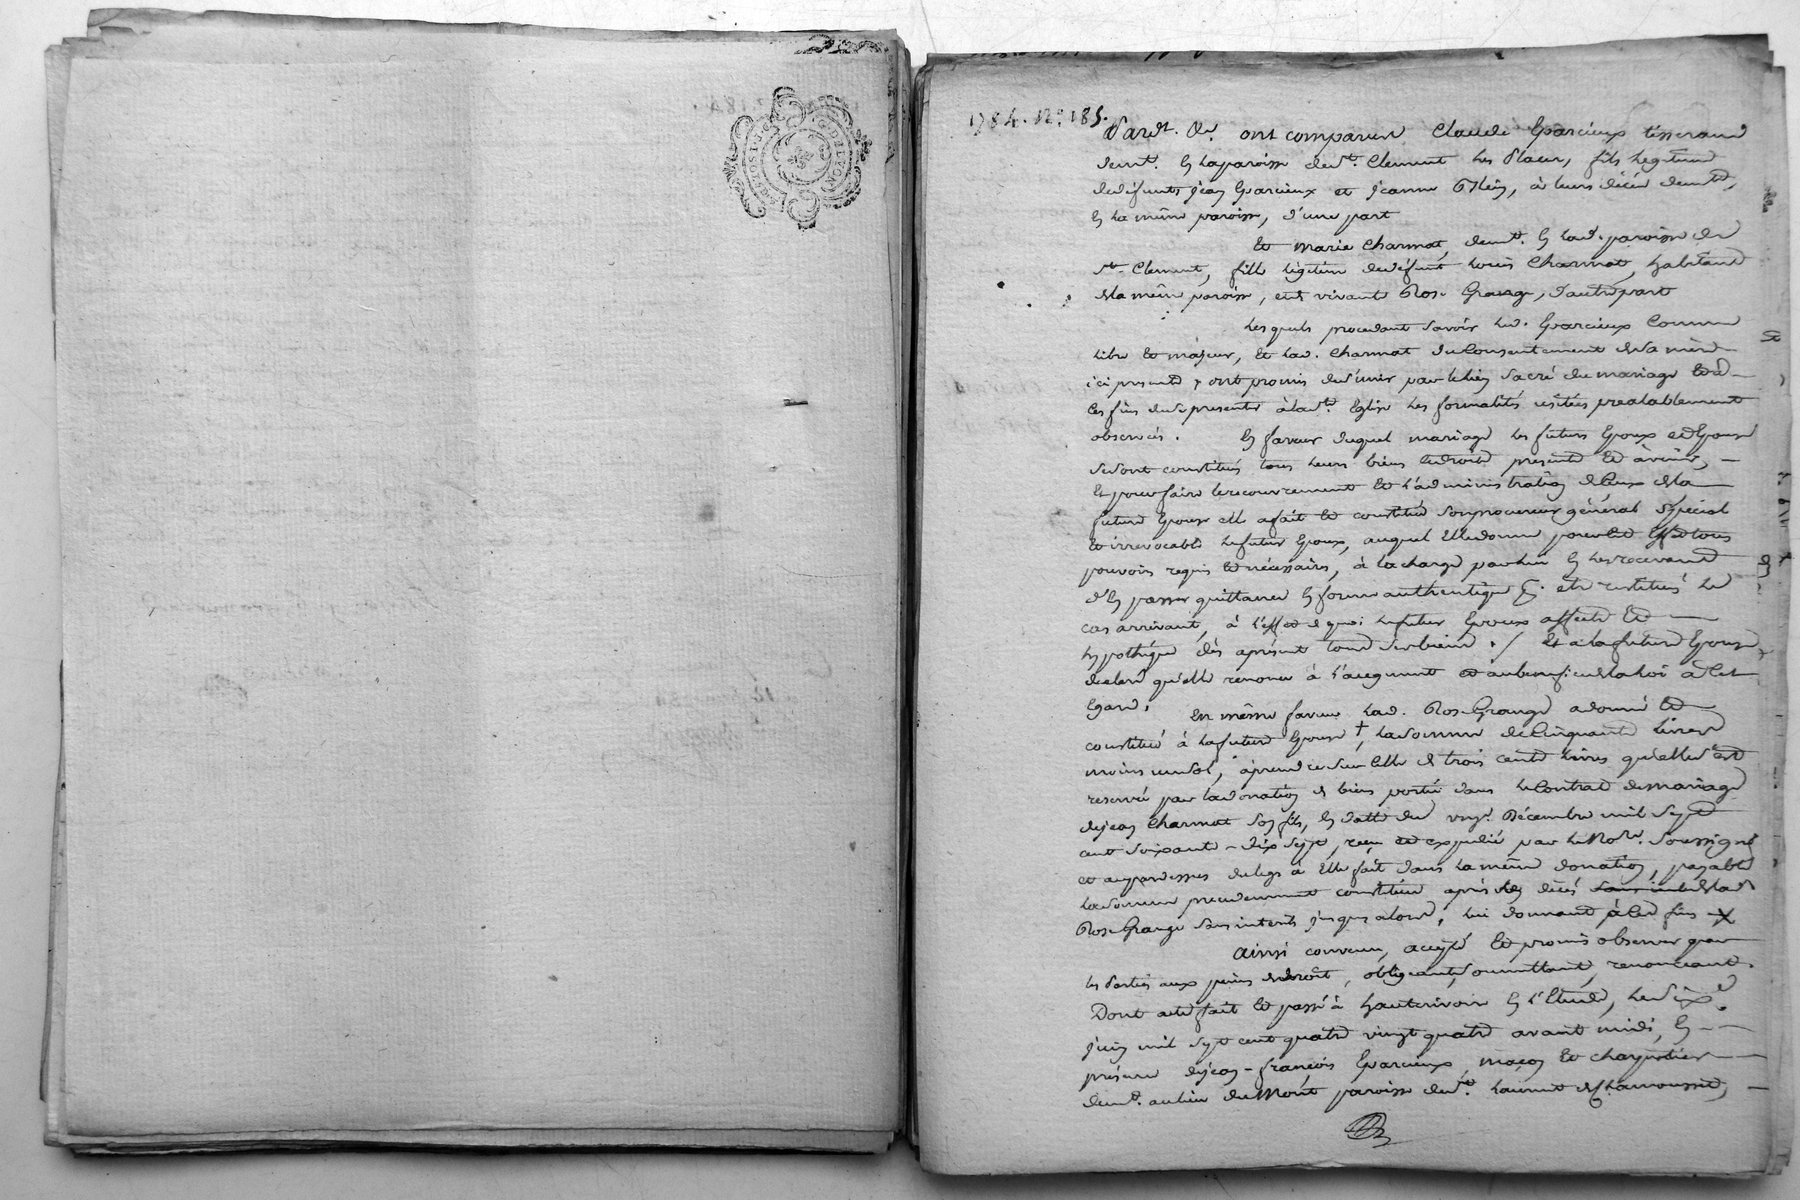 G. DE LYON
1784. N° 185.
Pardt. &a. ont comparu Claude Eparcieux tisserand
demt. en la paroisse de st. Clement les Places, fils legitime
de défunts jean Eparcieux et jeanne, à leurs décès demts.
en la même paroisse, d'une part
Et Marie Charmot, demt. en lad. paroisse de
st. Clement, fille légitime de défunt Louis Charmot, habitant
de la même paroisse, et de vivante Rose Grange, d'autre part
Lesquels procedant savoir led. Eparcieux comme
libre et majeur, et lad. Charmot du consentement de sa mère
ici presente, ont promis de s'unir par le lien sacré du mariage et à
ces fins de se presenter à lad. te. Eglise les formalités usitées prealablement
observées. En faveur duquel mariage les futurs Epoux et Epouse
se sont constitués tous leurs biens et droits presents et à venir,
et pour faire le recouvrement et l'administration de ceux de la
future Epouse elle a fait et constitué son procureur général spécial
et irrevocable le futur Epoux, auquel elle donne pour cet effet tous
pouvoirs requis et nécessaires, à la charge par lui en les recevant
d'en passer quittance en forme authentique &. et restitués le
cas arrivant, à l'effet de quoi le futur Epoux affecte et
hypothéque dès aprésent tous ses biens ./ Et a la future Epouse
declaré qu'elle renonce à l'augment et au benefice de la loi à cet
égard. En même faveur lad. Rose Grange a donné et
constitué à la future Epouse †, la somme de cinquante livres
moins un sol, à prendre sur celle de trois cents livres qu'elle s'est
reservée par la donation de biens portée dans le contrat de mariage
de jean Charmot son fils, en datte du vingt Décembre mil sept
cent soixante-dix sept, reçu et expedié par le Nore. soussigné
et au par dessus du legs à elle fait dans la même donation, payable
la somme precedemment constituée après le décès de lad
Rose Grange sans interets jusques alors, lui donnant à ces fins X
Ainsi convenu, accepté et promis observer par
les Parties aux peines de droit, obligeant, soumettant, renonceant.
Dont acte fait et passé à hauterivoire en l'Etude, le dixe
juin mil sept cent quatre vingt quatre avant midi, en
présence de jean-françois Eparcieux, maçon et charpentier
demt. au lieu du Mont paroisse de st. Laurent de Chamousset,